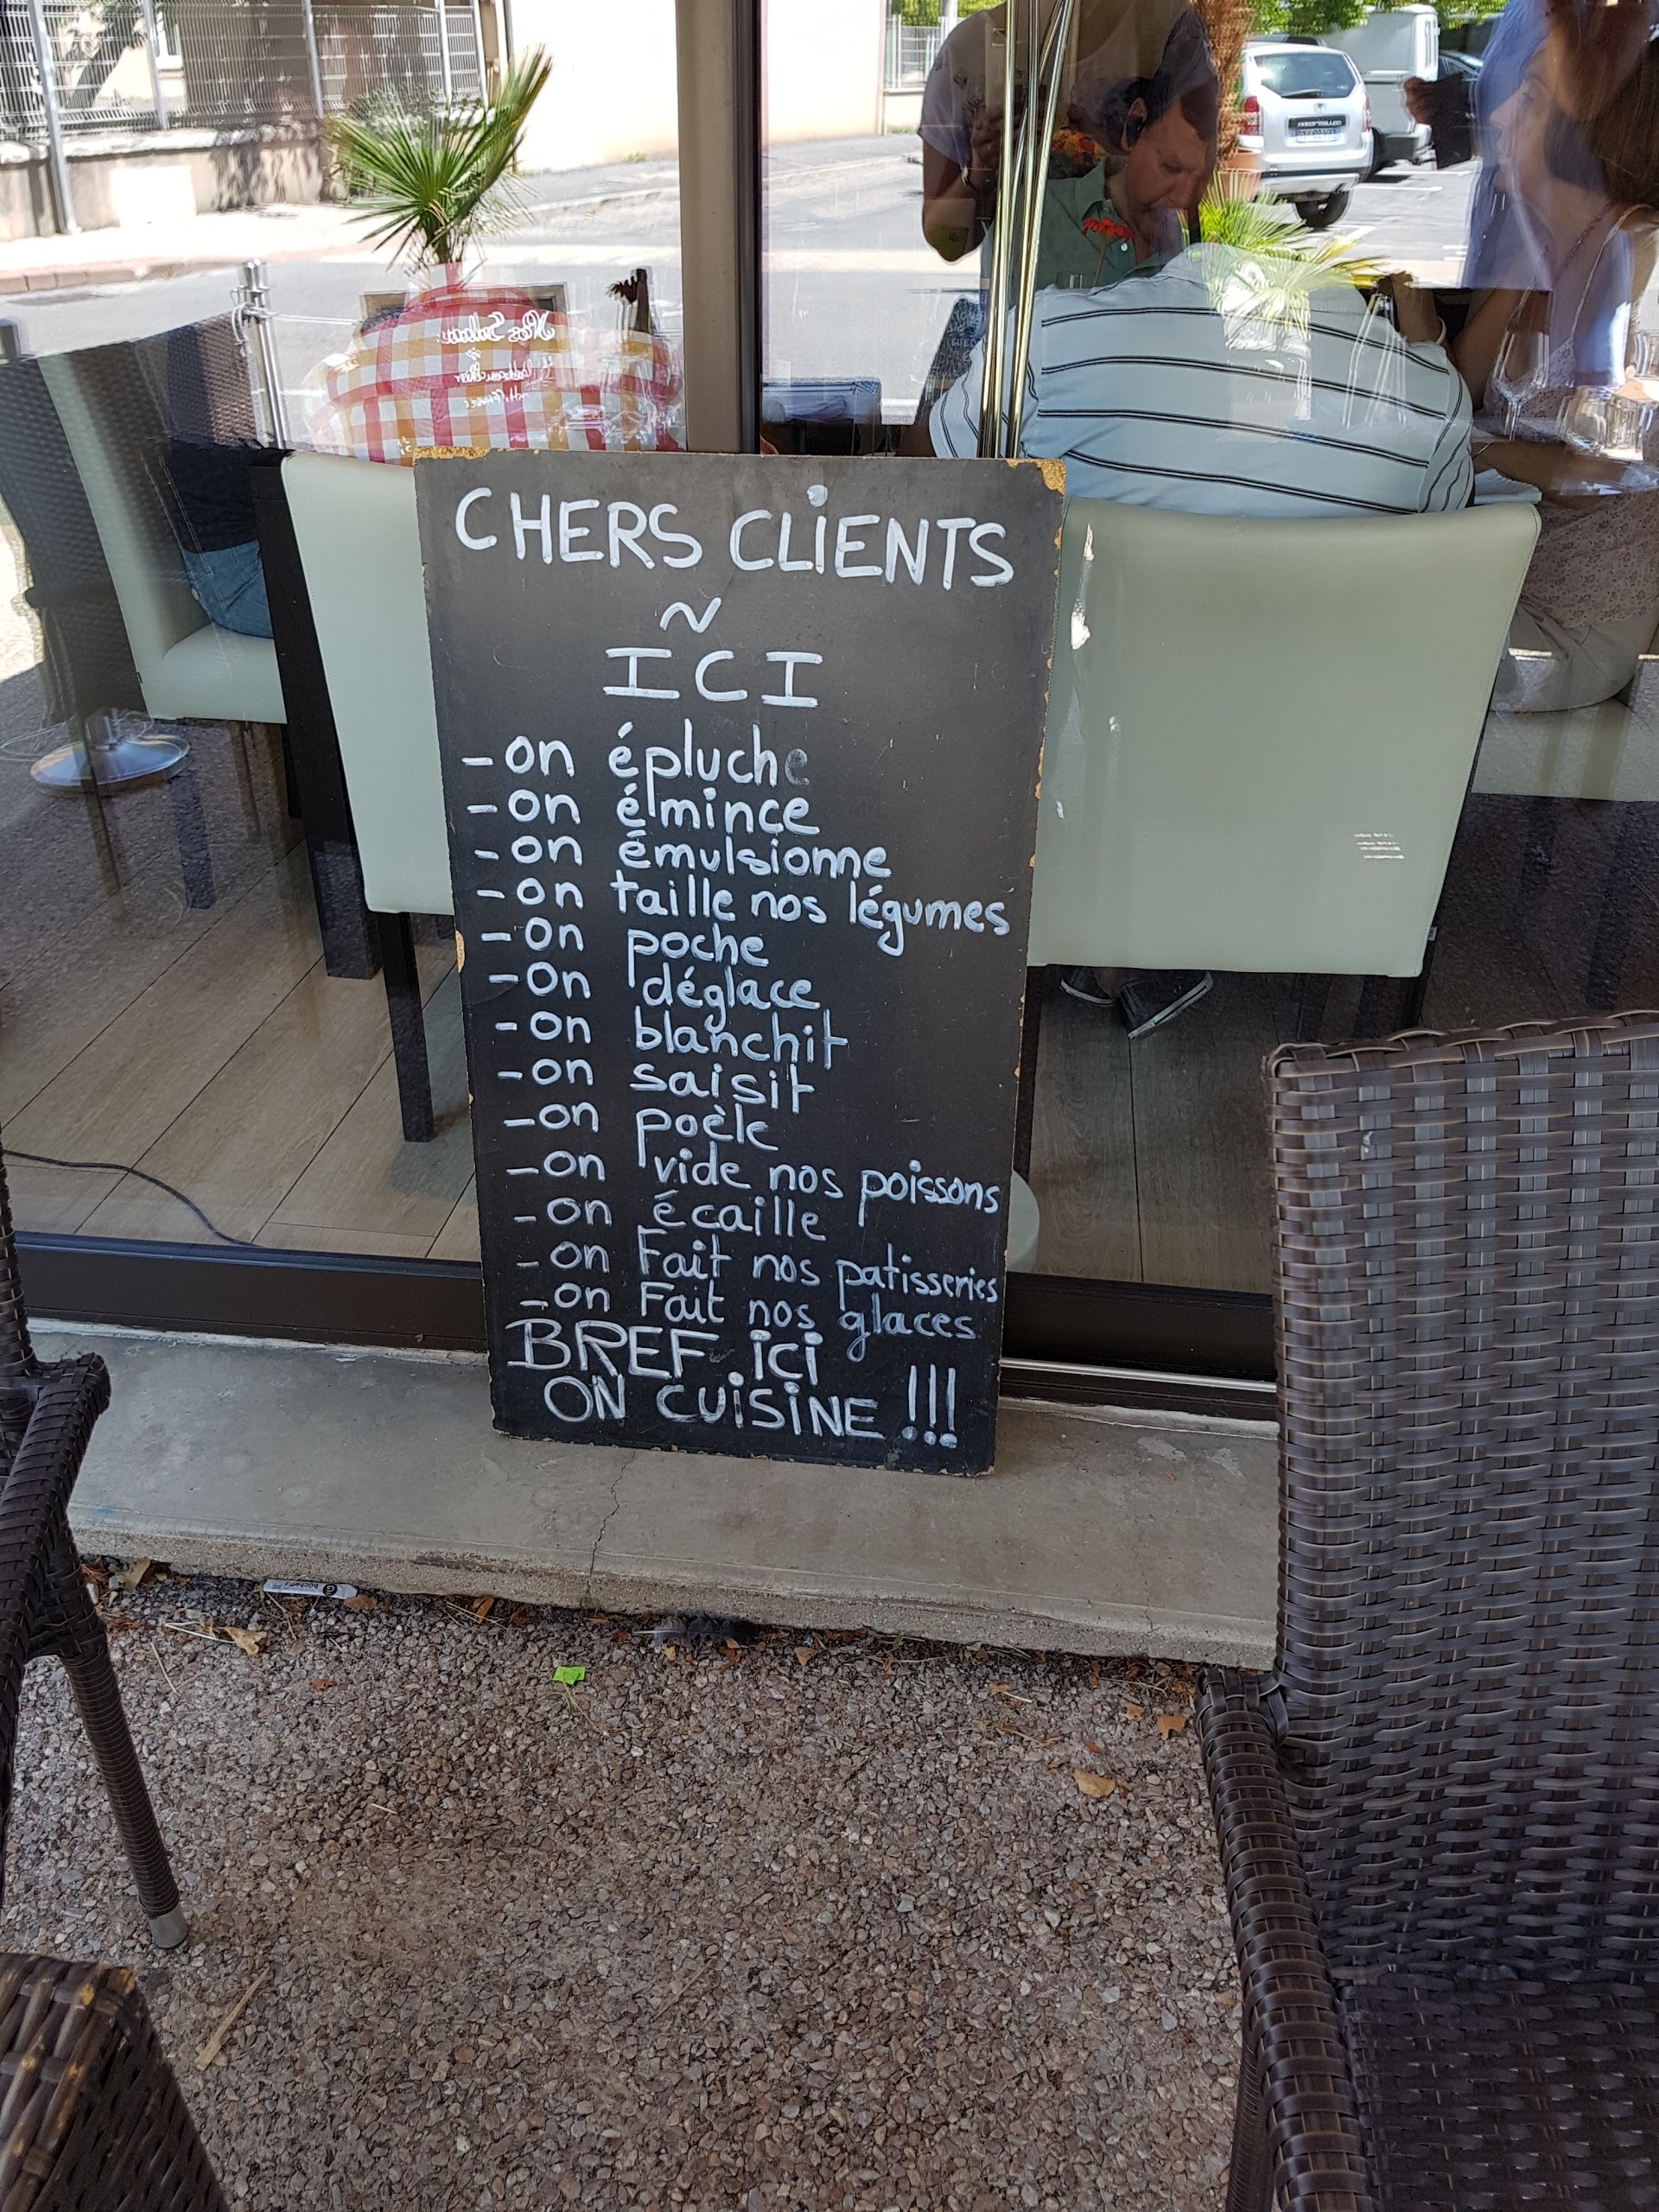 CHERS CLIENTS
~
ICI
- on épluche
- on émince
- on émulsionne
- on taille nos légumes
- on poche
- on déglace
- on blanchit
- on saisit
- on poèle
- on vide nos poissons
- on écaille
- on Fait nos patisseries
- on Fait nos glaces
BREF. ici
ON CUISINE !!!